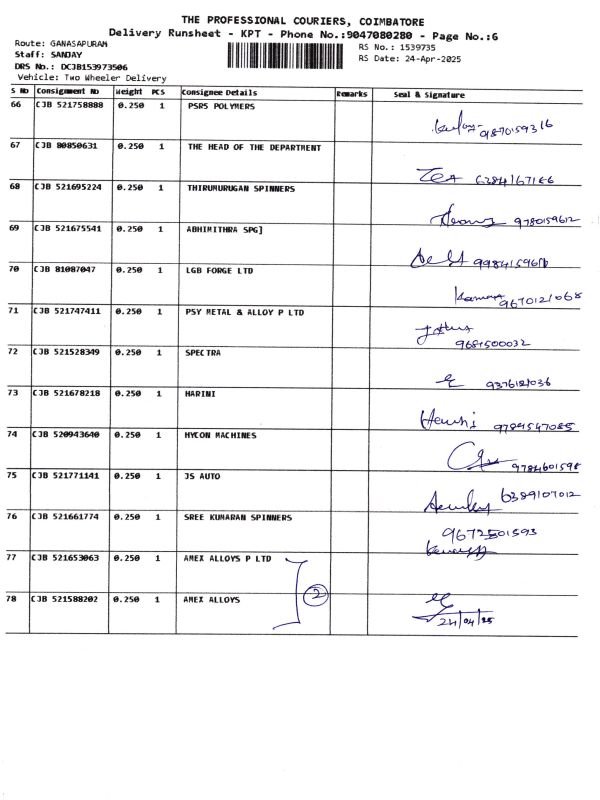 THE PROFESSIONAL COURIERS, COIMBATORE
Delivery Runsheet - KPT - Phone No.:9047080280 - Page No.:6
Route: GANASAPURAM
Staff: SANJAY
DRS No.: DCJB153973506
Vehicle: Two Wheeler Delivery
RS No.: 1539735
RS Date: 24-Apr-2025
S No Consignment No Weight PCS Consignee Details Remarks Seal & Signature
66 CJB 521758888 0.250 1 PSRS POLYMERS
9870159316
67 CJB 80850631 0.250 1 THE HEAD OF THE DEPARTMENT
68 CJB 521695224 0.250 1 THIRUMURUGAN SPINNERS
9780159612
69 CJB 521675541 0.250 1 ABHIMITHRA SPG]
70 CJB 81087047 0.250 1 LGB FORGE LTD
9670121068
71 CJB 521747411 0.250 1 PSY METAL & ALLOY P LTD
9687500032
72 CJB 521528349 0.250 1 SPECTRA
9376121036
73 CJB 521678218 0.250 1 HARINI
9789547085
74 CJB 520943640 0.250 1 HYCON MACHINES
9784601598
75 CJB 521771141 0.250 1 JS AUTO
6389107012
76 CJB 521661774 0.250 1 SREE KUMARAN SPINNERS
9672501593
77 CJB 521653063 0.250 1 AMEX ALLOYS P LTD
2
78 CJB 521588202 0.250 1 AMEX ALLOYS
24/04/25